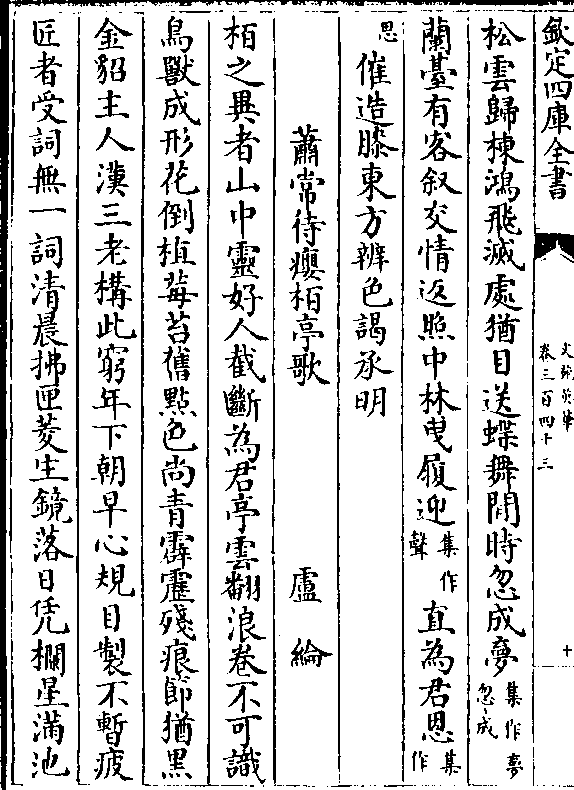 欽定四庫全書
文苑英華
卷三百四十三
十
松雲歸棟鴻飛滅處猶目送蝶舞閒時忽成夢集作夢忽成
蘭臺有客叙交情返照中林曳履迎集作聲直為君恩集作
恩催造膝東方辨色謁承明
蕭常侍癭栢亭歌 盧綸
栢之異者山中靈好人截斷為君亭雲翻浪卷不可識
鳥獸成形花倒植莓苔舊點色尚青霹靂殘痕節猶黒
金貂主人漢三老構此窮年下朝早心規目製不暫疲
匠者受詞無一詞清晨拂匣菱生鏡落日凭欄星滿池